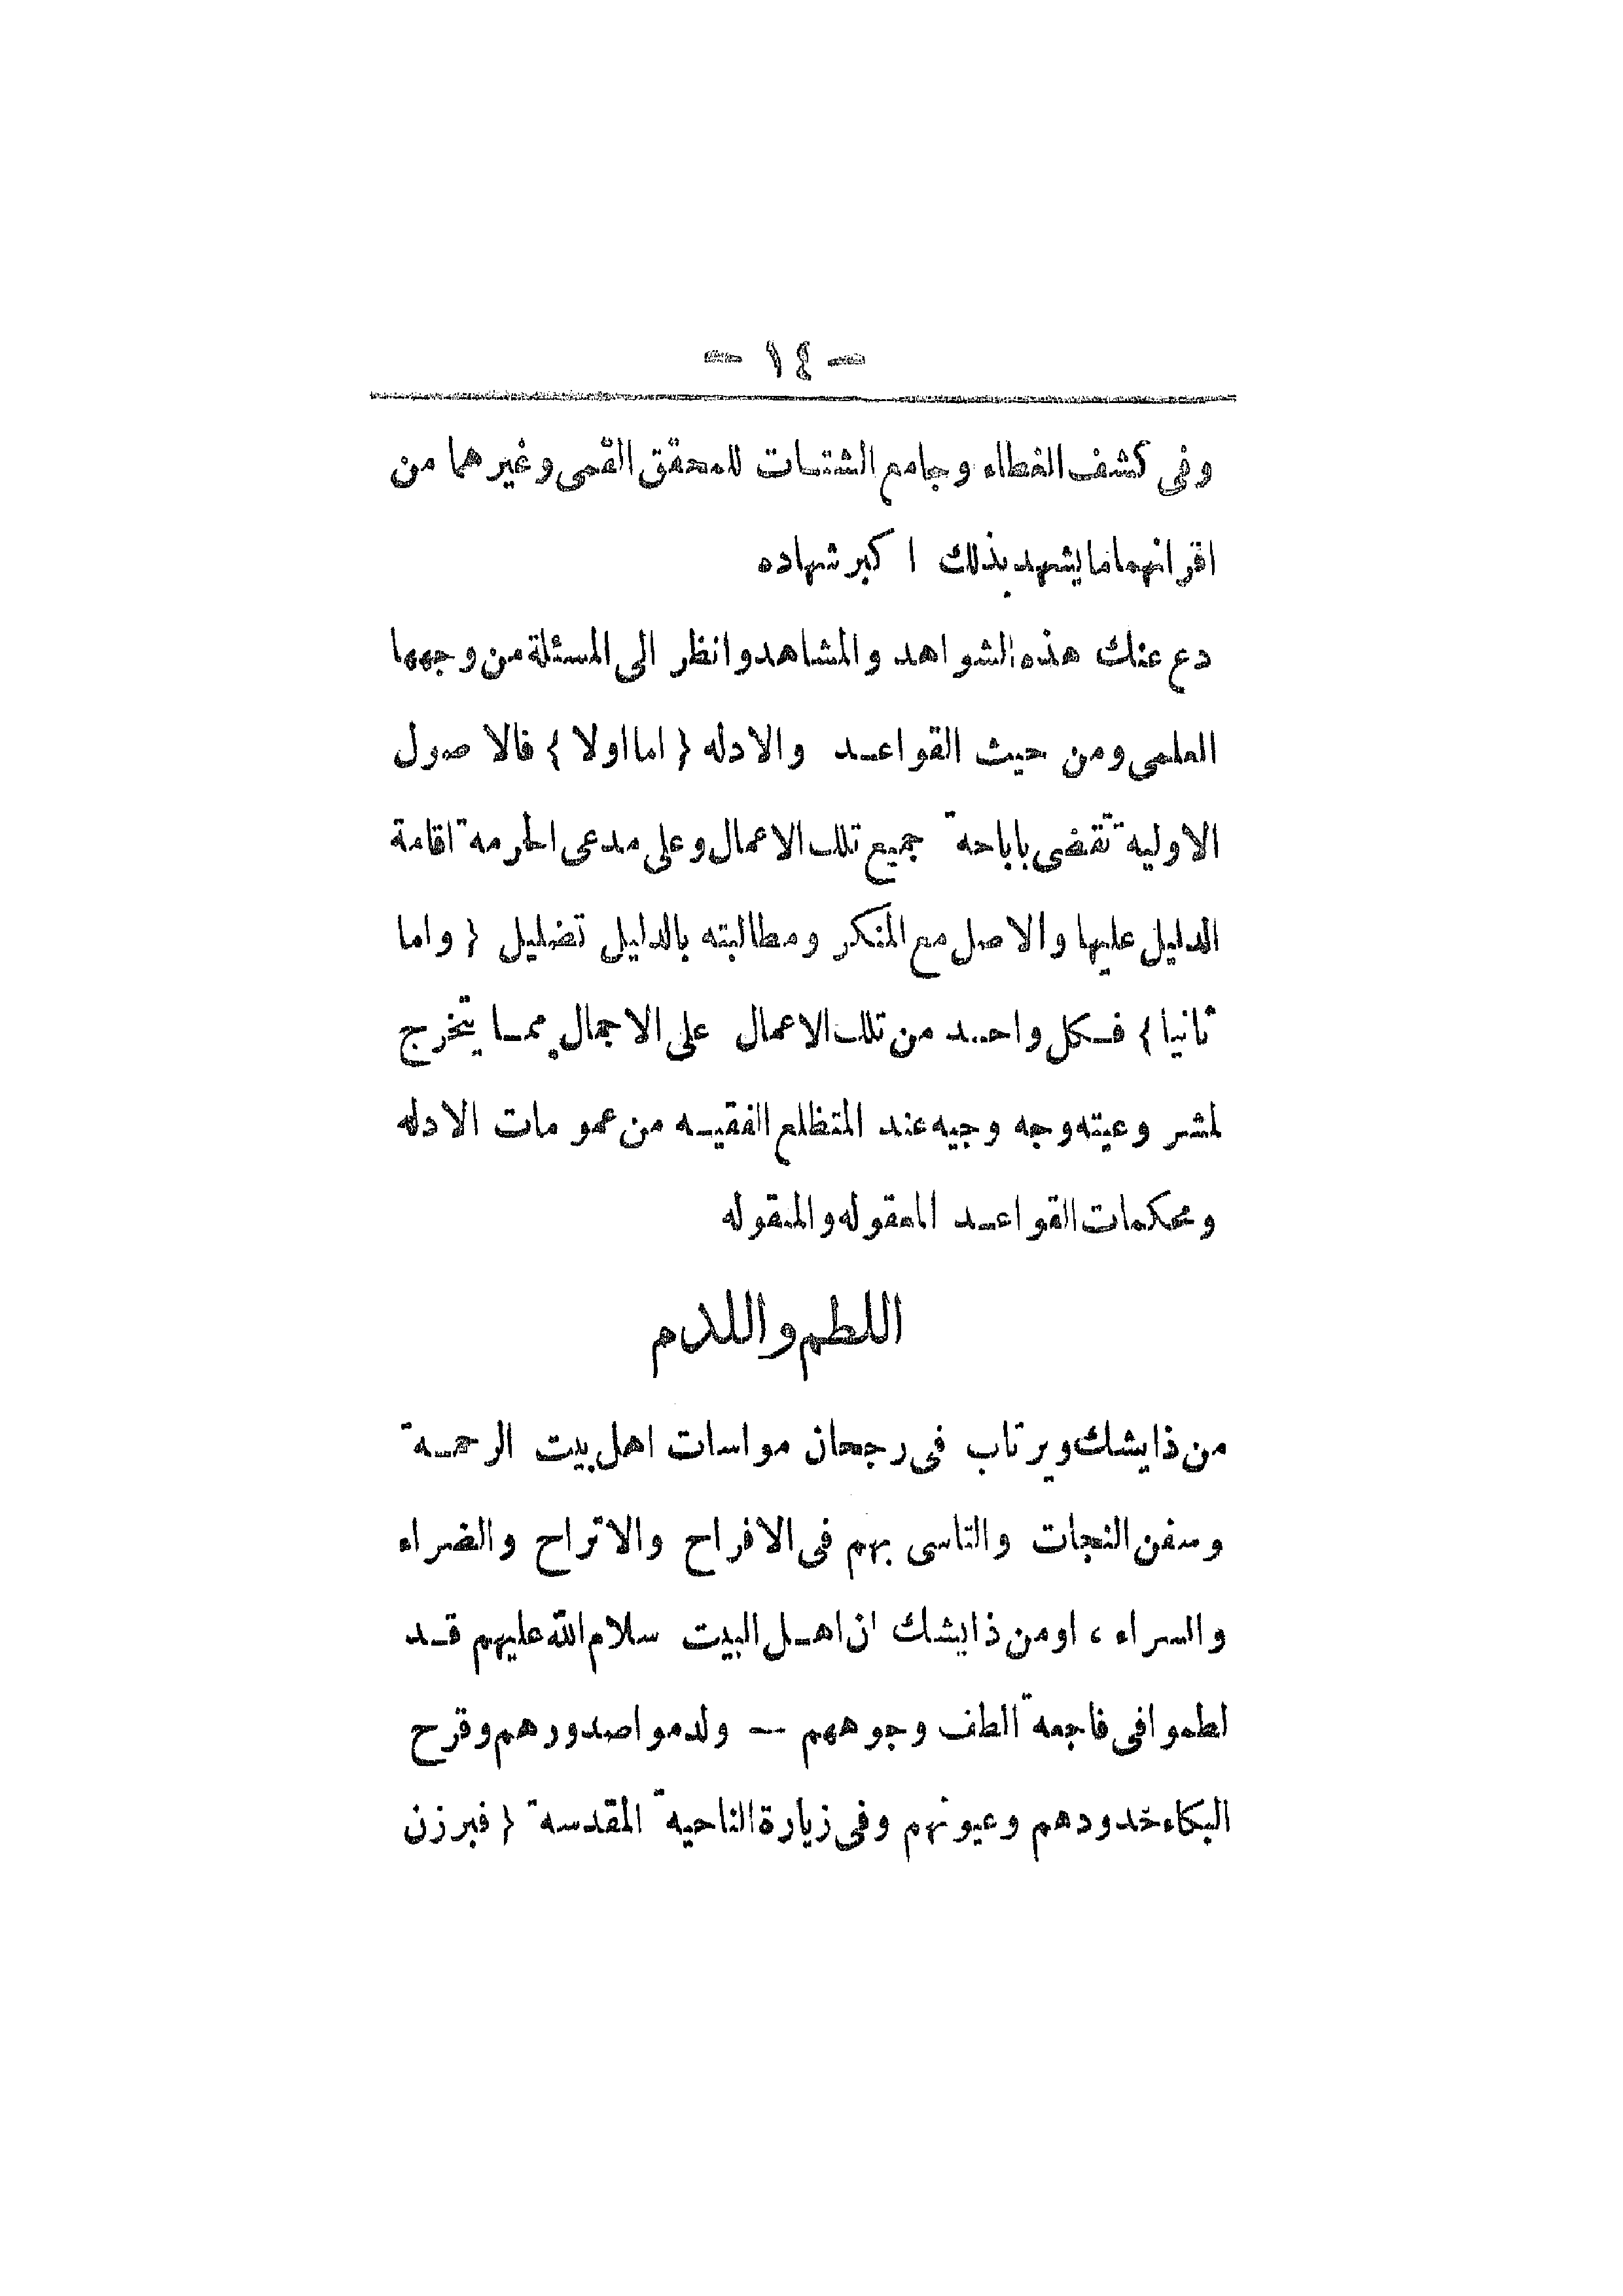 - ١٤ -
وفي كشف الغطاء وجامع الشتات للمحقق القمي وغيرهما من
اقرانهما ما يشهد بذلك اكبر شهاده
دع عنك هذه الشواهد والمشاهد وانظر الى المسئلة من وجهها
العلمي ومن حيث القواعد والادله { اما اولا } فالاصول
الاولية تقضى باباحة جميع تلك الاعمال وعلى مدعى الحرمة اقامة
الدليل عليها والاصل مع المنكر ومطالبته بالدليل تضليل { واما
ثانيا } فكل واحد من تلك الاعمال على الاجمال مما يتخرج
لمشروعيته وجه وجيه عند المتظلع الفقيه من عمومات الادله
ومحكمات القواعد المعقوله والمنقوله
اللطم واللدم
من ذا يشك ويرتاب في رجحان مواسات اهل بيت الرحمة
وسفن النجات والتاسى بهم في الافراح والاتراح والضراء
والسراء ، او من ذا يشك ان اهل البيت سلام الله عليهم قد
لطموا في فاجعة الطف وجوههم — ولدموا صدورهم وقرح
البكاء خدودهم وعيونهم وفي زيارة الناحية المقدسة { فبرزن